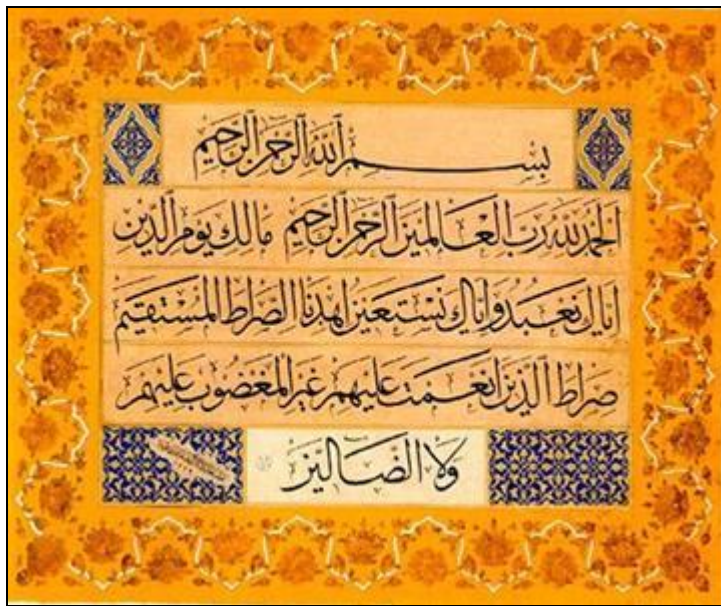 بِسْمِ اللّٰهِ الرَّحْمٰنِ الرَّحِيمِ
اَلْحَمْدُ لِلّٰهِ رَبِّ الْعَالَمِينَ الرَّحْمٰنِ الرَّحِيمِ مَالِكِ يَوْمِ الدِّينِ
اِيَّاكَ نَعْبُدُ وَاِيَّاكَ نَسْتَعِينُ اِهْدِنَا الصِّرَاطَ الْمُسْتَقِيمَ
صِرَاطَ الَّذِينَ اَنْعَمْتَ عَلَيْهِمْ غَيْرِ الْمَغْضُوبِ عَلَيْهِمْ
وَلَا الضَّالِّينَ